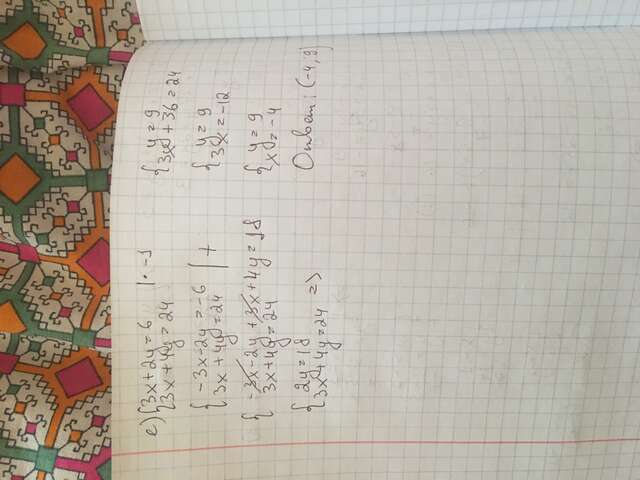 е) { 3x+2y=6 |· -1
{ 3x+4y=24
{ -3x-2y=-6 | +
{ 3x+4y=24
{ -3x-2y+3x+4y=18
{ 3x+4y=24
{ 2y=18
{ 3x+4y=24 =>
{ y=9
{ 3x+36=24
{ y=9
{ 3x=-12
{ y=9
{ x=-4
Ответ: (-4, 9)